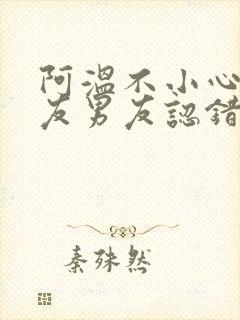 阿溫不小心
友男友認錯
秦殊然